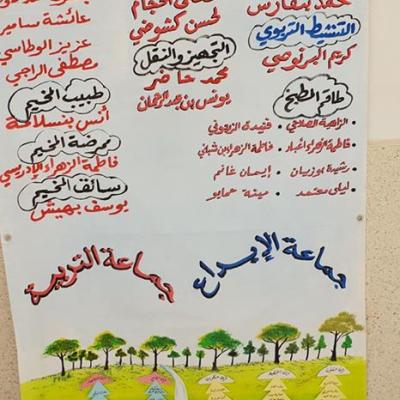 محمد بنفارس
التنشيط التربوي
كريم البرنوصي
طاقم المطبخ
الزاهية الصالحي
فتيحة الزيتوني
فاطمة الزهراء أغبار
فاطمة الزهراء بن شبلي
رشيدة بوزيان
إيمان غانم
ليلى معتمد
مينة حمايو
الحجام
لحسن كشوضي
التجهيز والنقل
محمد حاضر
يونس بن عبد الرحمان
عائشة سامير
عزيز الوطاسي
مصطفى الراجي
طبيب المخيم
أنس بنسلامة
ممرضة المخيم
فاطمة الزهراء الإدريسي
سائق المخيم
يوسف بهيش
جماعة الإبداع
جماعة التربية